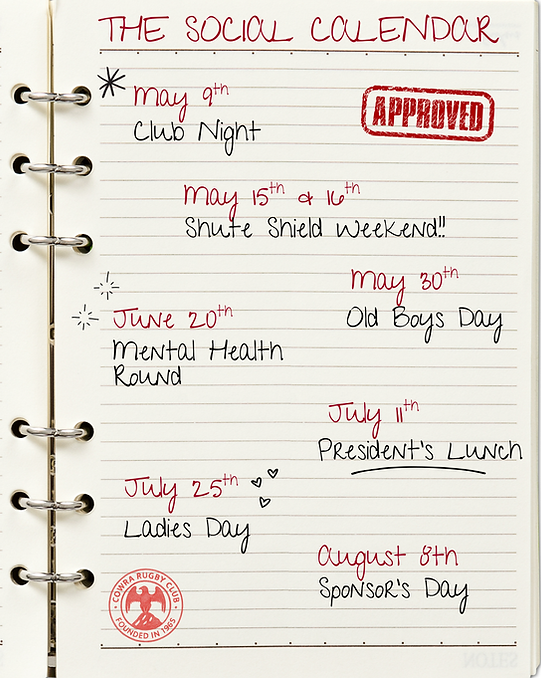 THE SOCIAL CALENDAR
May 9th
Club Night
APPROVED
May 15th & 16th
Shute Shield Weekend!!
May 30th
Old Boys Day
June 20th
Mental Health
Round
July 11th
President's Lunch
July 25th
Ladies Day
August 8th
Sponsor's Day
COWRA RUGBY CLUB
FOUNDED IN 1965
NOTES